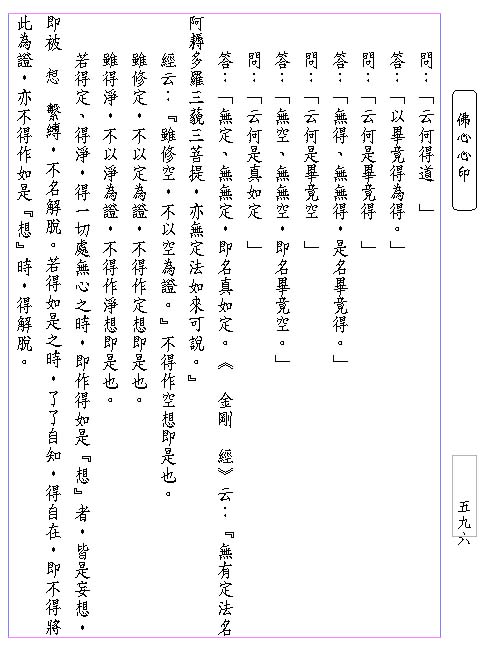 佛心心印
五九六
問：「云何得道　」
答：「以畢竟得為得。」
問：「云何是畢竟得　」
答：「無得、無無得，是名畢竟得。」
問：「云何是畢竟空　」
答：「無空、無無空，即名畢竟空。」
問：「云何是真如定　」
答：「無定、無無定，即名真如定。《　金剛　經》云：『無有定法名
阿耨多羅三藐三菩提，亦無定法如來可說。』
經云：『雖修空，不以空為證。』不得作空想即是也。
雖修定，不以定為證，不得作定想即是也。
雖得淨，不以淨為證，不得作淨想即是也。
若得定、得淨，得一切處無心之時，即作得如是『想』者，皆是妄想，
即被　想　繫縛，不名解脫。若得如是之時，了了自知，得自在，即不得將
此為證，亦不得作如是『想』時，得解脫。